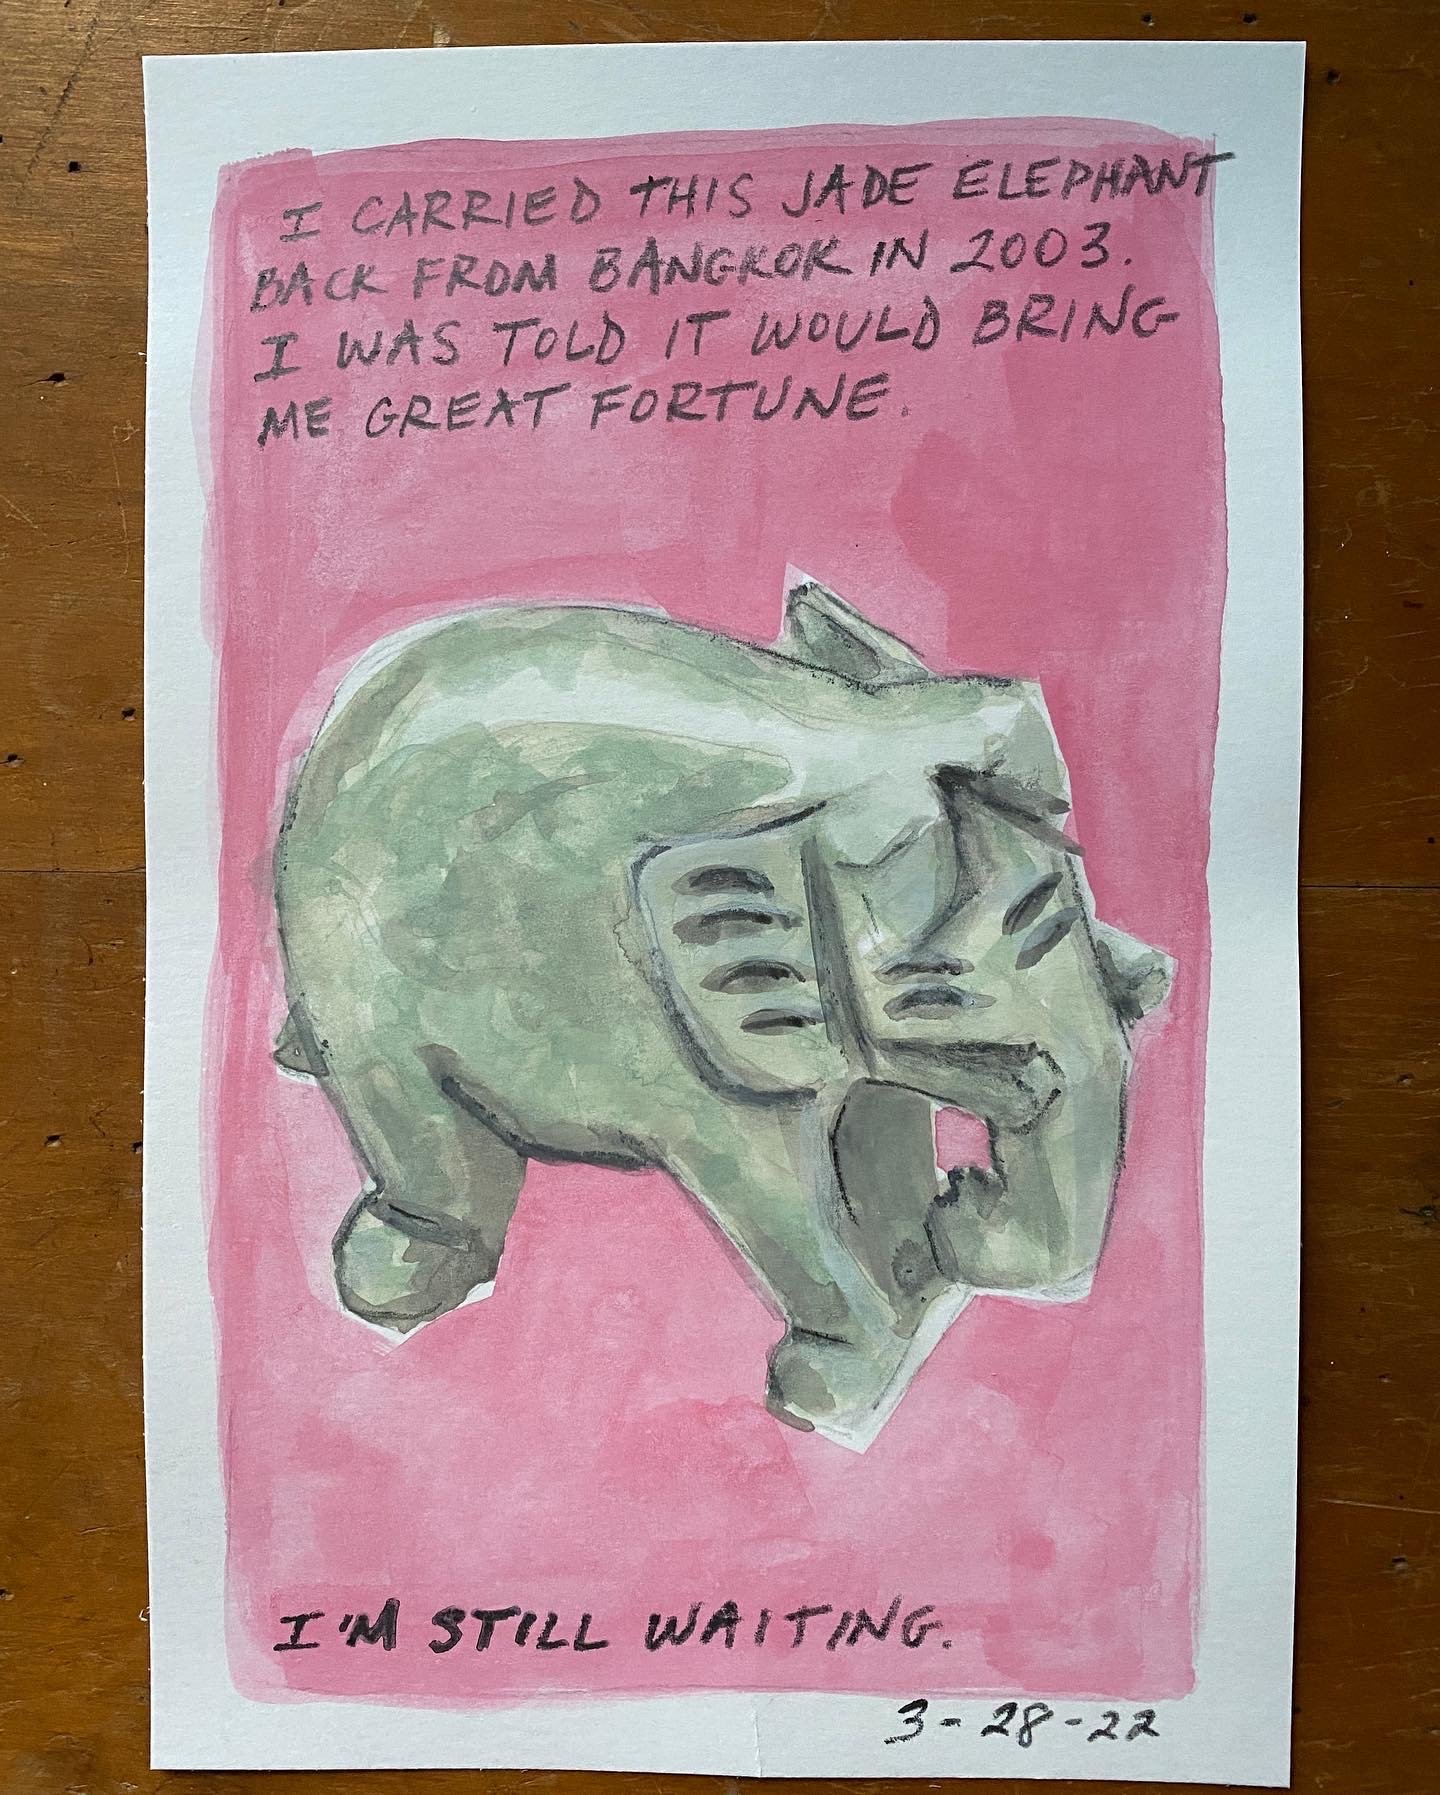 I CARRIED THIS JADE ELEPHANT
BACK FROM BANGKOK IN 2003.
I WAS TOLD IT WOULD BRING
ME GREAT FORTUNE.
I'M STILL WAITING.
3-28-22